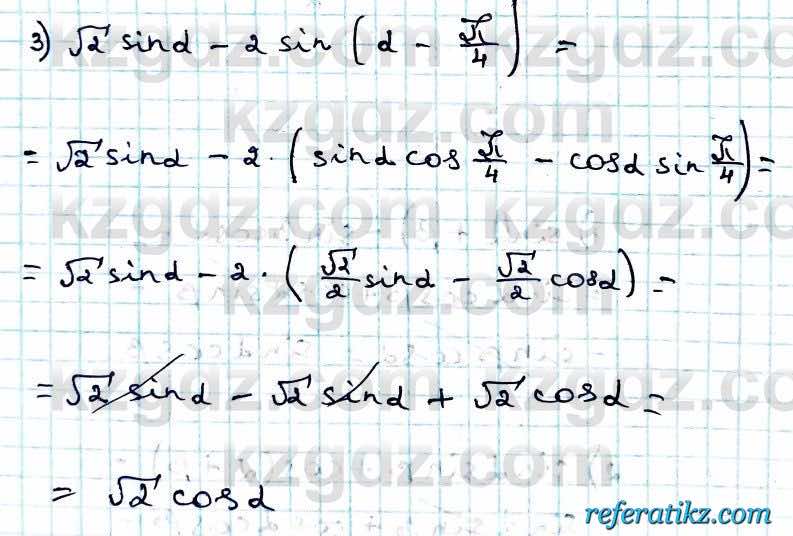 3) √2 sinα - 2 sin (α - π/4) =
= √2 sinα - 2 · (sinα cos π/4 - cosα sin π/4) =
= √2 sinα - 2 · (√2/2 sinα - √2/2 cosα) =
= √2 sinα - √2 sinα + √2 cosα =
= √2 cosα
kzgdz.com
referatikz.com